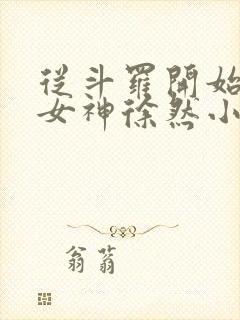 從斗羅開始
女神徐然小
翁蓊